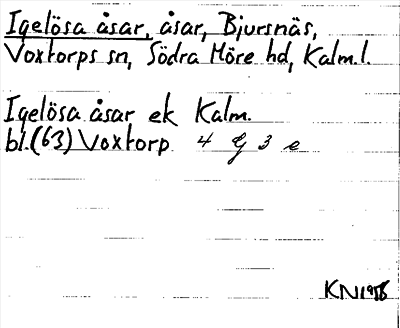 Igelösa åsar, åsar, Bjursnäs,
Voxtorps sn, Södra Möre hd, Kalm.l.
Igelösa åsar ek Kalm.
bl.(63) Voxtorp 4 G 3 e
KN